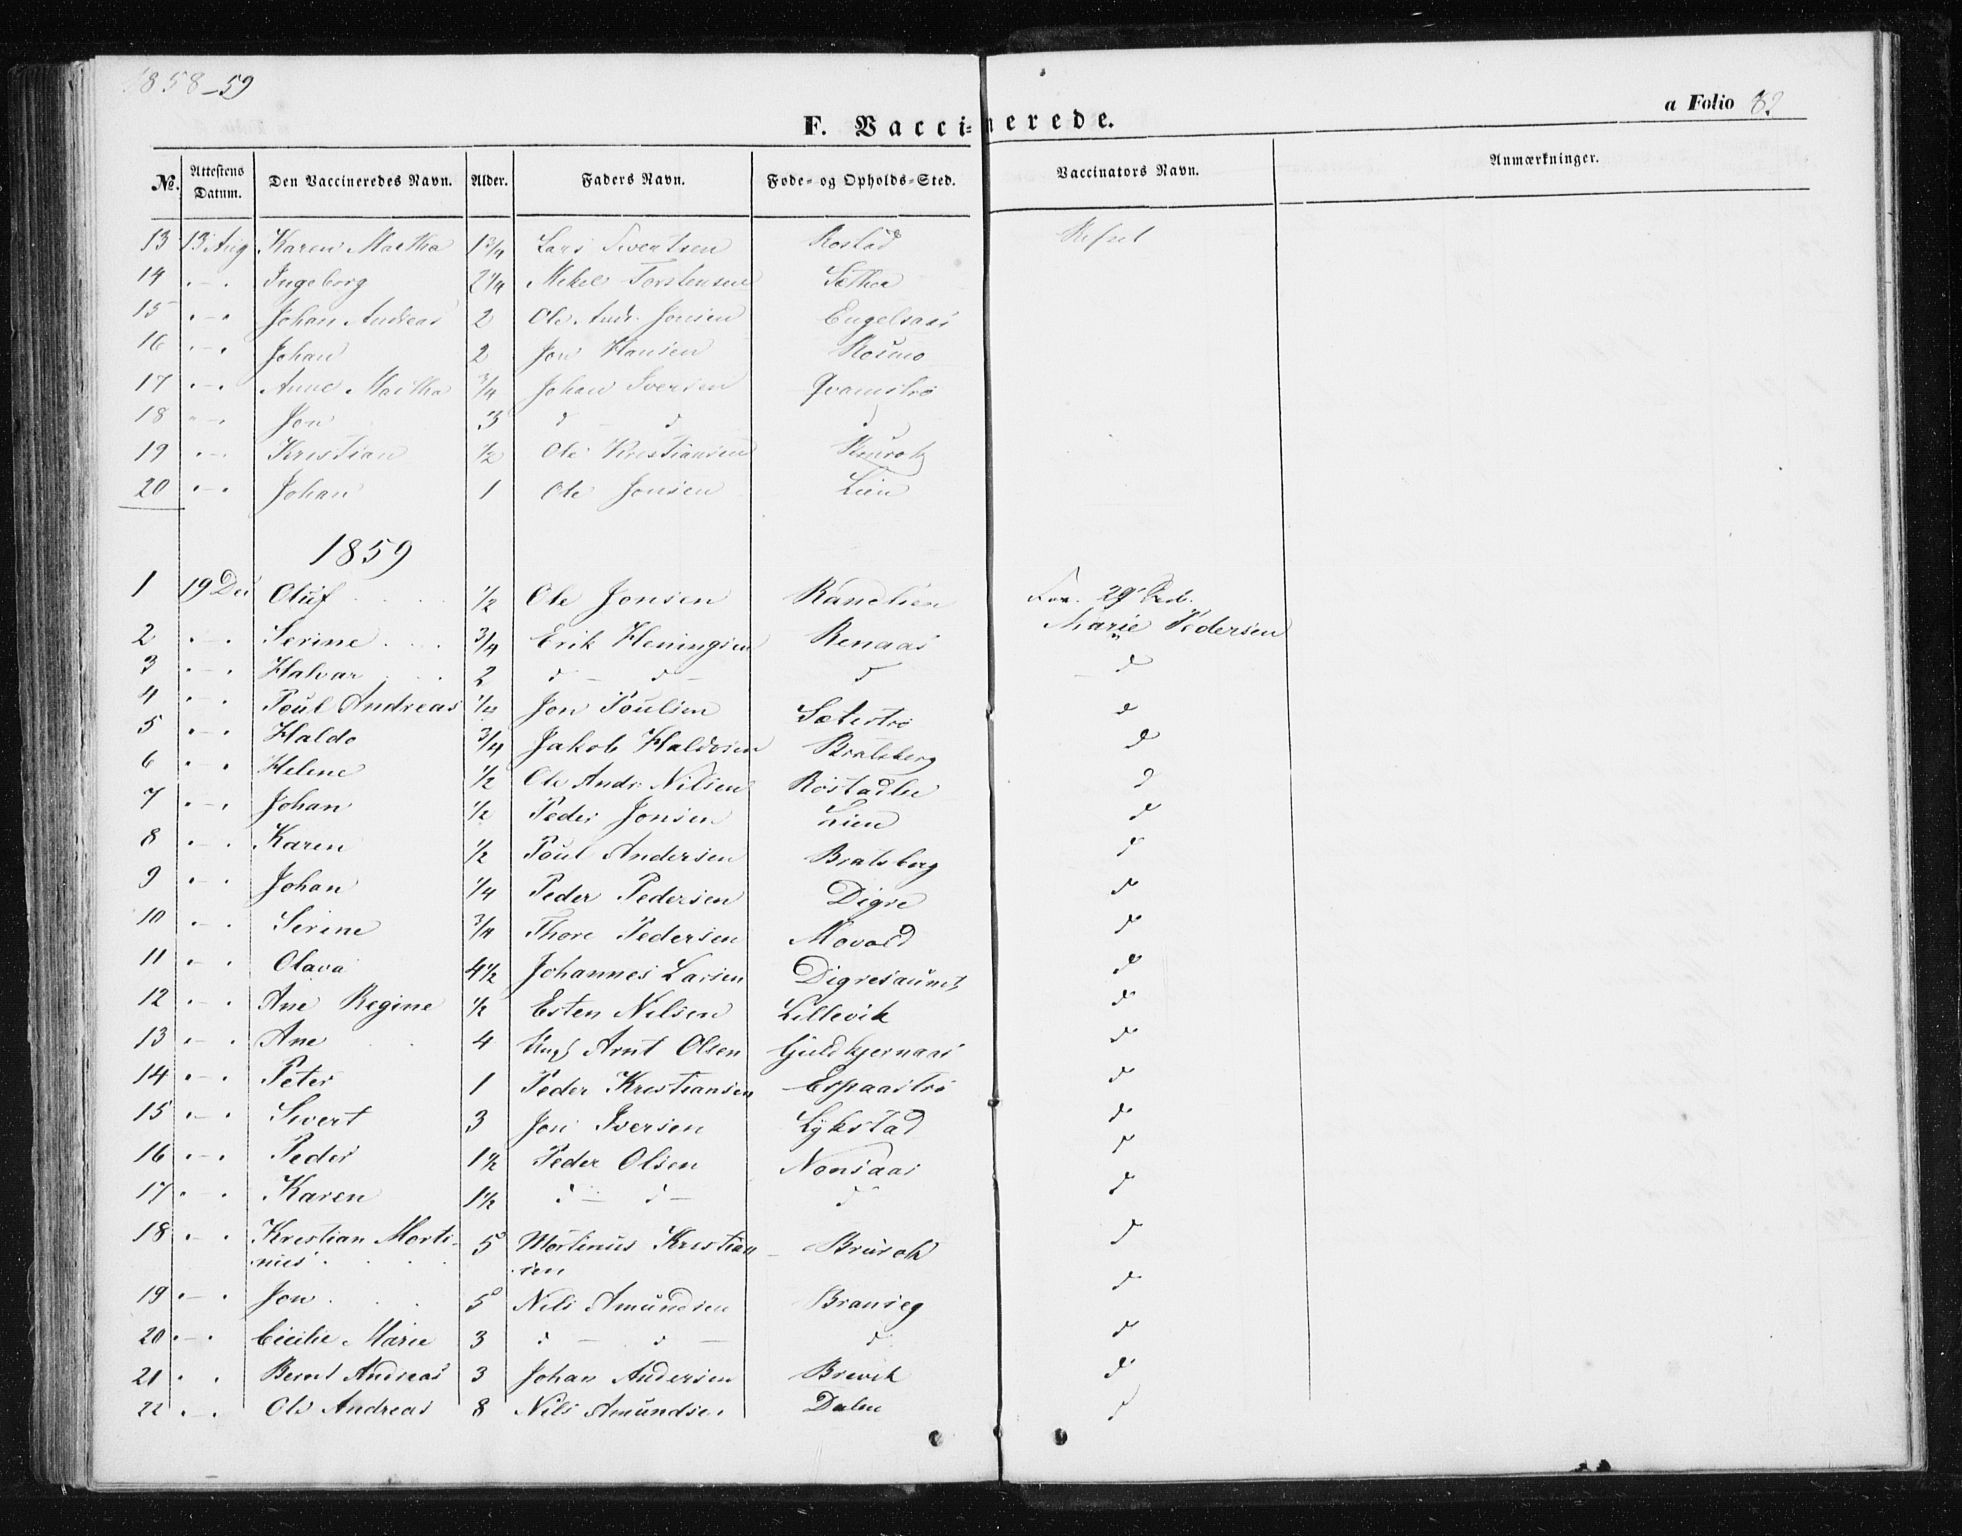 1858-59
F. Vaccinerede.
a Folio 82
No. Attestens Datum. Den Vaccineredes Navn. Alder. Faders Navn. Føde- og Opholds-Sted. Vaccinators Navn. Anmærkninger.
13 13 Aug Karen Martha 1 3/4 Lars Sivertsen Rostad
14 " - " Ingeborg 2 1/4 Mikel Torstensen Sæther
15 " - " Johan Andreas 2 Ole Andr. Jonsen Engelsaas
16 " - " Johan 2 Jon Hansen
17 " - " Anne Martha 3/4 Johan Iversen Qvamstrø
18 " - " Jon 3 d - d - d
19 " - " Kristian 1/2 Ole Kristiansen
20 " - " Johan 1 Ole Jonsen Lien
1859
1 19 Dec Oluf 1/2 Ole Jonsen Ranelien
2 " - " Serine 3/4 Erik Heningsen Renaas Marie Pedersen
3 " - " Halvar 2 d - d - d d
4 " - " Poul Andreas Jon Poulsen Sæterstrø d
5 " - " Haldo 3/4 Jakob Haldosen Bratsberg d
6 " - " Helene 1/2 Ole Andr. Nilsen Rostadlie d
7 " - " Johan 1/2 Peder Jonsen Lien d
8 " - " Karen 1/2 Poul Andersen Bratsberg d
9 " - " Johan 1/4 Peder Pedersen Digre d
10 " - " Serine 3/4 Thore Pedersen Movald d
11 " - " Olava 4 1/2 Johannes Larsen Digresaunet d
12 " - " Ane Regine 1/2 Esten Nilsen Lillevik d
13 " - " Ane 4 Ungk Arnt Olsen Guldkjernaas d
14 " - " Peter 1 Peder Kristiansen Espaastrø d
15 " - " Sivert 3 Jon Iversen Lykstad d
16 " - " Peder 1 1/2 Peder Olsen Nonsaas d
17 " - " Karen 1 1/2 d - d - d d
18 " - " Kristian Marti- 5 Martinus Kristian Brurok d
nus . sen
19 " - " Jon 5 Nils Amundsen Branseg d
20 " - " Cicilie Marie 3 d - d - d d
21 " " Bernt Andreas 3 Johan Andersen Brevik d
22 " - " Ole Andreas 8 Nils Amundsen Dalen d